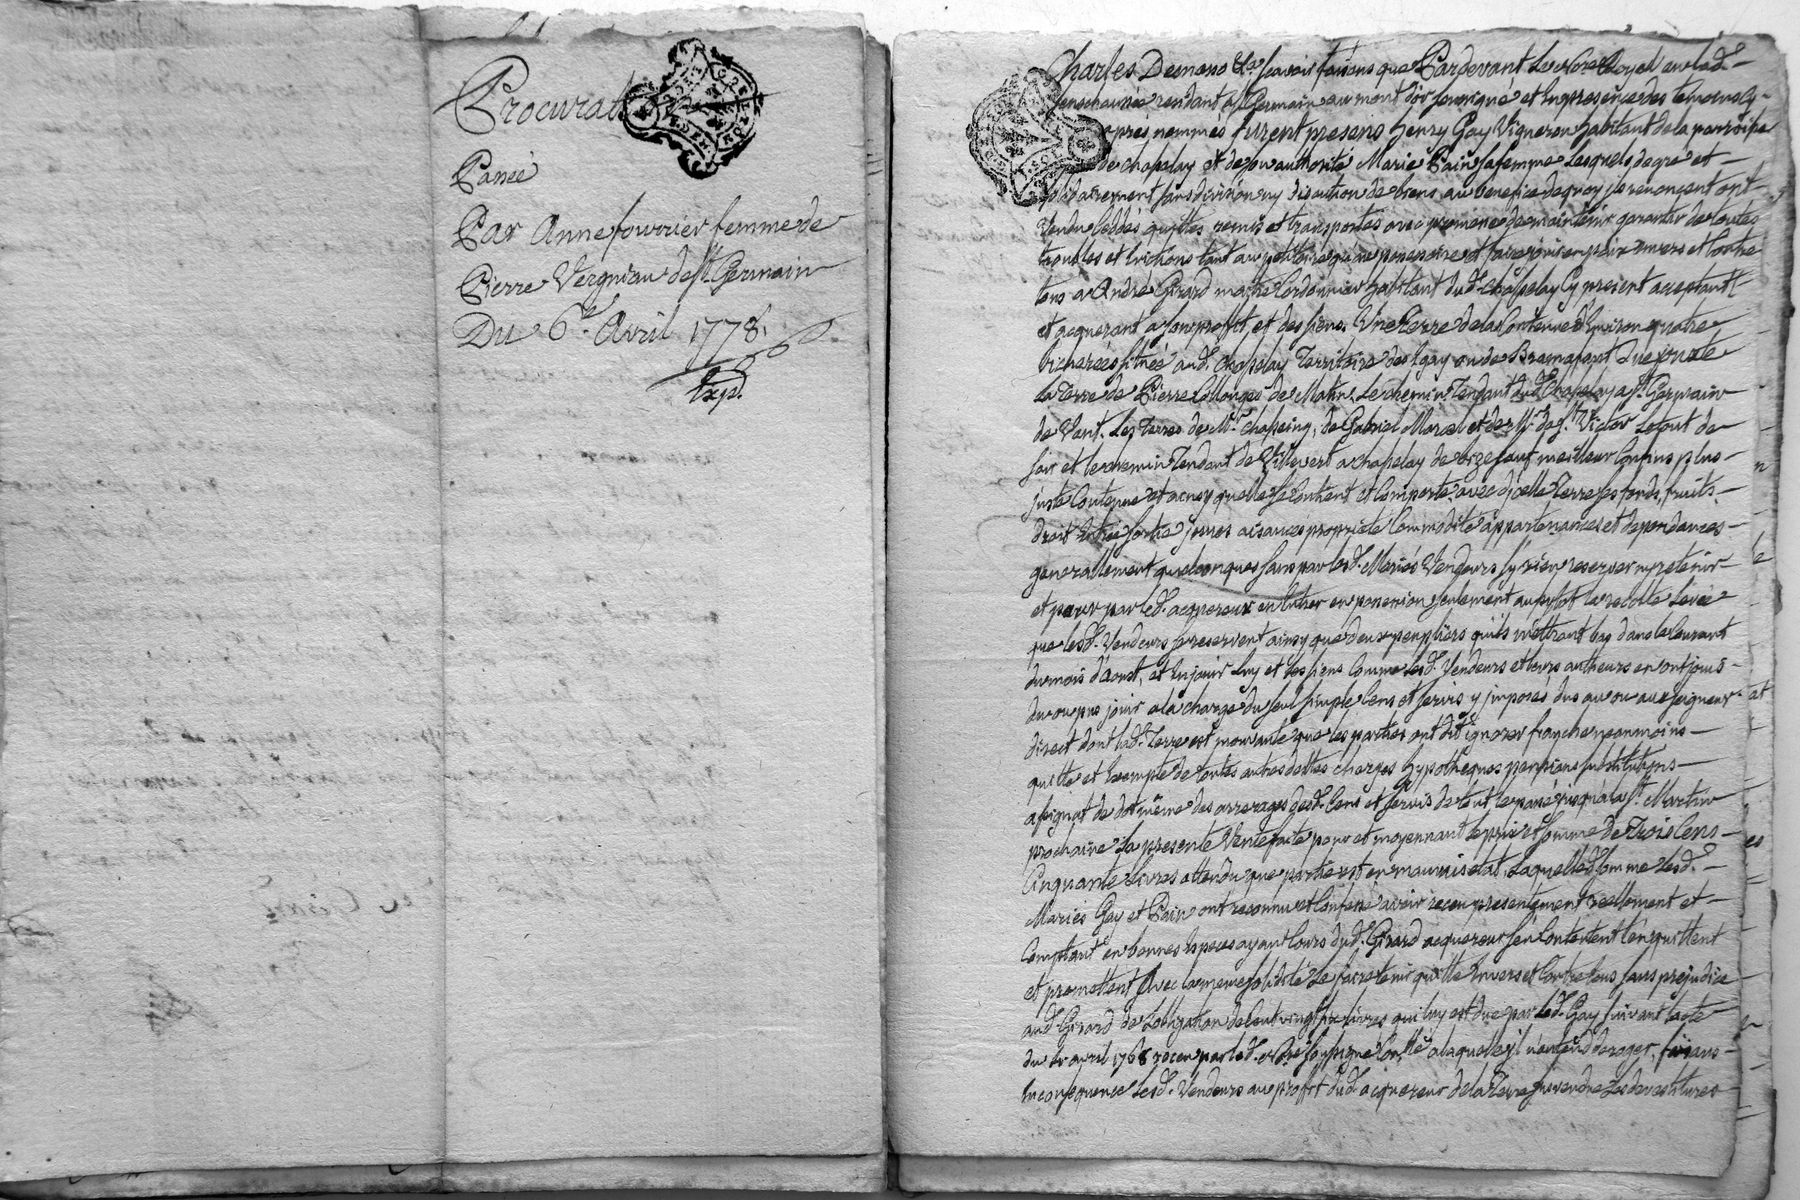 Procurat
Passée
Par Anne fourrier femme de
Pierre Vergniau de St. Germain
Du 6e. Avril 1778.
Exp.
Charles Demono &a. scavoir faisons que Pardevant Le No.re Royal en lad.
senechaussée residant a St. Germain au mont d'or soussigné et En presence des temoins cy-
après nommés furent presens henry Gay Vigneron habitant de la parroisse
de chapelay et de son authorité Marie Pain sa femme Lesquels de gré et
solidairement sans division ny discution de biens au benefice de quoy ils renoncent ont
Vendu Ceddés quittés remis et transportés avec promesse de maintenir garantir de toutes
troubles et Evictions tant au petitoire qu'au possessoire et faire jouir en paix envers et Contre
tous a André Girard maitre Cordonnier habitant dud. chapelay Cy present acceptant
et acquerant a son proffit et des siens. Une Terre de la Contenue d'Environ quatre
bicherées située aud. chapelay Territoire de Lgay ou de Bramafant que jouxte
La Terre de Pierre Collonges de Matin. Le chemin Tendant dud. Chapelay a St. Germain
de Vent. Les Terres de Mr. chapeing, de Gabriel Morel et de Mr. de St. Victor Le tout de
soir et le chemin Tendant de Villevert a chapelay de bize sauf meilleurs Confins plus
juste Contenue et ainsy quelle se Contient et Comporte avec d'icelle Terre ses fonds, fruits,
droit Entrée sortie jours aisances propriété Commodité appartenances et dependances
generallement quelconques sans par lesd. Mariés Vendeurs sy rien reserver ny retenir
et pour par led. acquereur en Entrer en possession seulement aussytot la recolte Levée
que lesd. Vendeurs se reservent ainsy que deux peupliers qu'ils mettront bas dans le Courant
du mois d'aoust, et En jouir Luy et les siens Comme lesd. Vendeurs et leurs autheurs en ont joui
du ou pus jouir a la charge du seul simple Cens et servis y imposés dus au ou aux seigneur
direct dont lad. Terre est mouvante que les parties ont dit ignorer franche neanmoins
quitte et Exempte de toutes autres dettes charges hypotheques pensions substitutions
assignat de dot même des arrerages desd. Cens et servis de tout le passé jusqu'a la St. Martin
prochaine La presente Vente faite pour et moyennant le prix et somme de Trois Cens
Cinquante Livres attendu que partie est en mauvais etat, Laquelle somme lesd.
Mariés Gay et Pain ont reconnu et Confessé avoir receu presentement reellement et
Comptant en bonnes Especes ayant Cours dud. Girard acquereur s'en Contentent l'en quittent
et promettent Avec la meme solidité Le faire tenir quitte Envers et Contre tous sans prejudice
aud. Girard de l'obligation de Cent vingt six Livres qui luy est due par led. Gay suivant l'acte
du avril 1768 receu par led. No.re soussigné a laquelle il n'entend deroger, faisans
En consequence lesd. Vendeurs au proffit dud. acquereur de la Terre Les devestitures